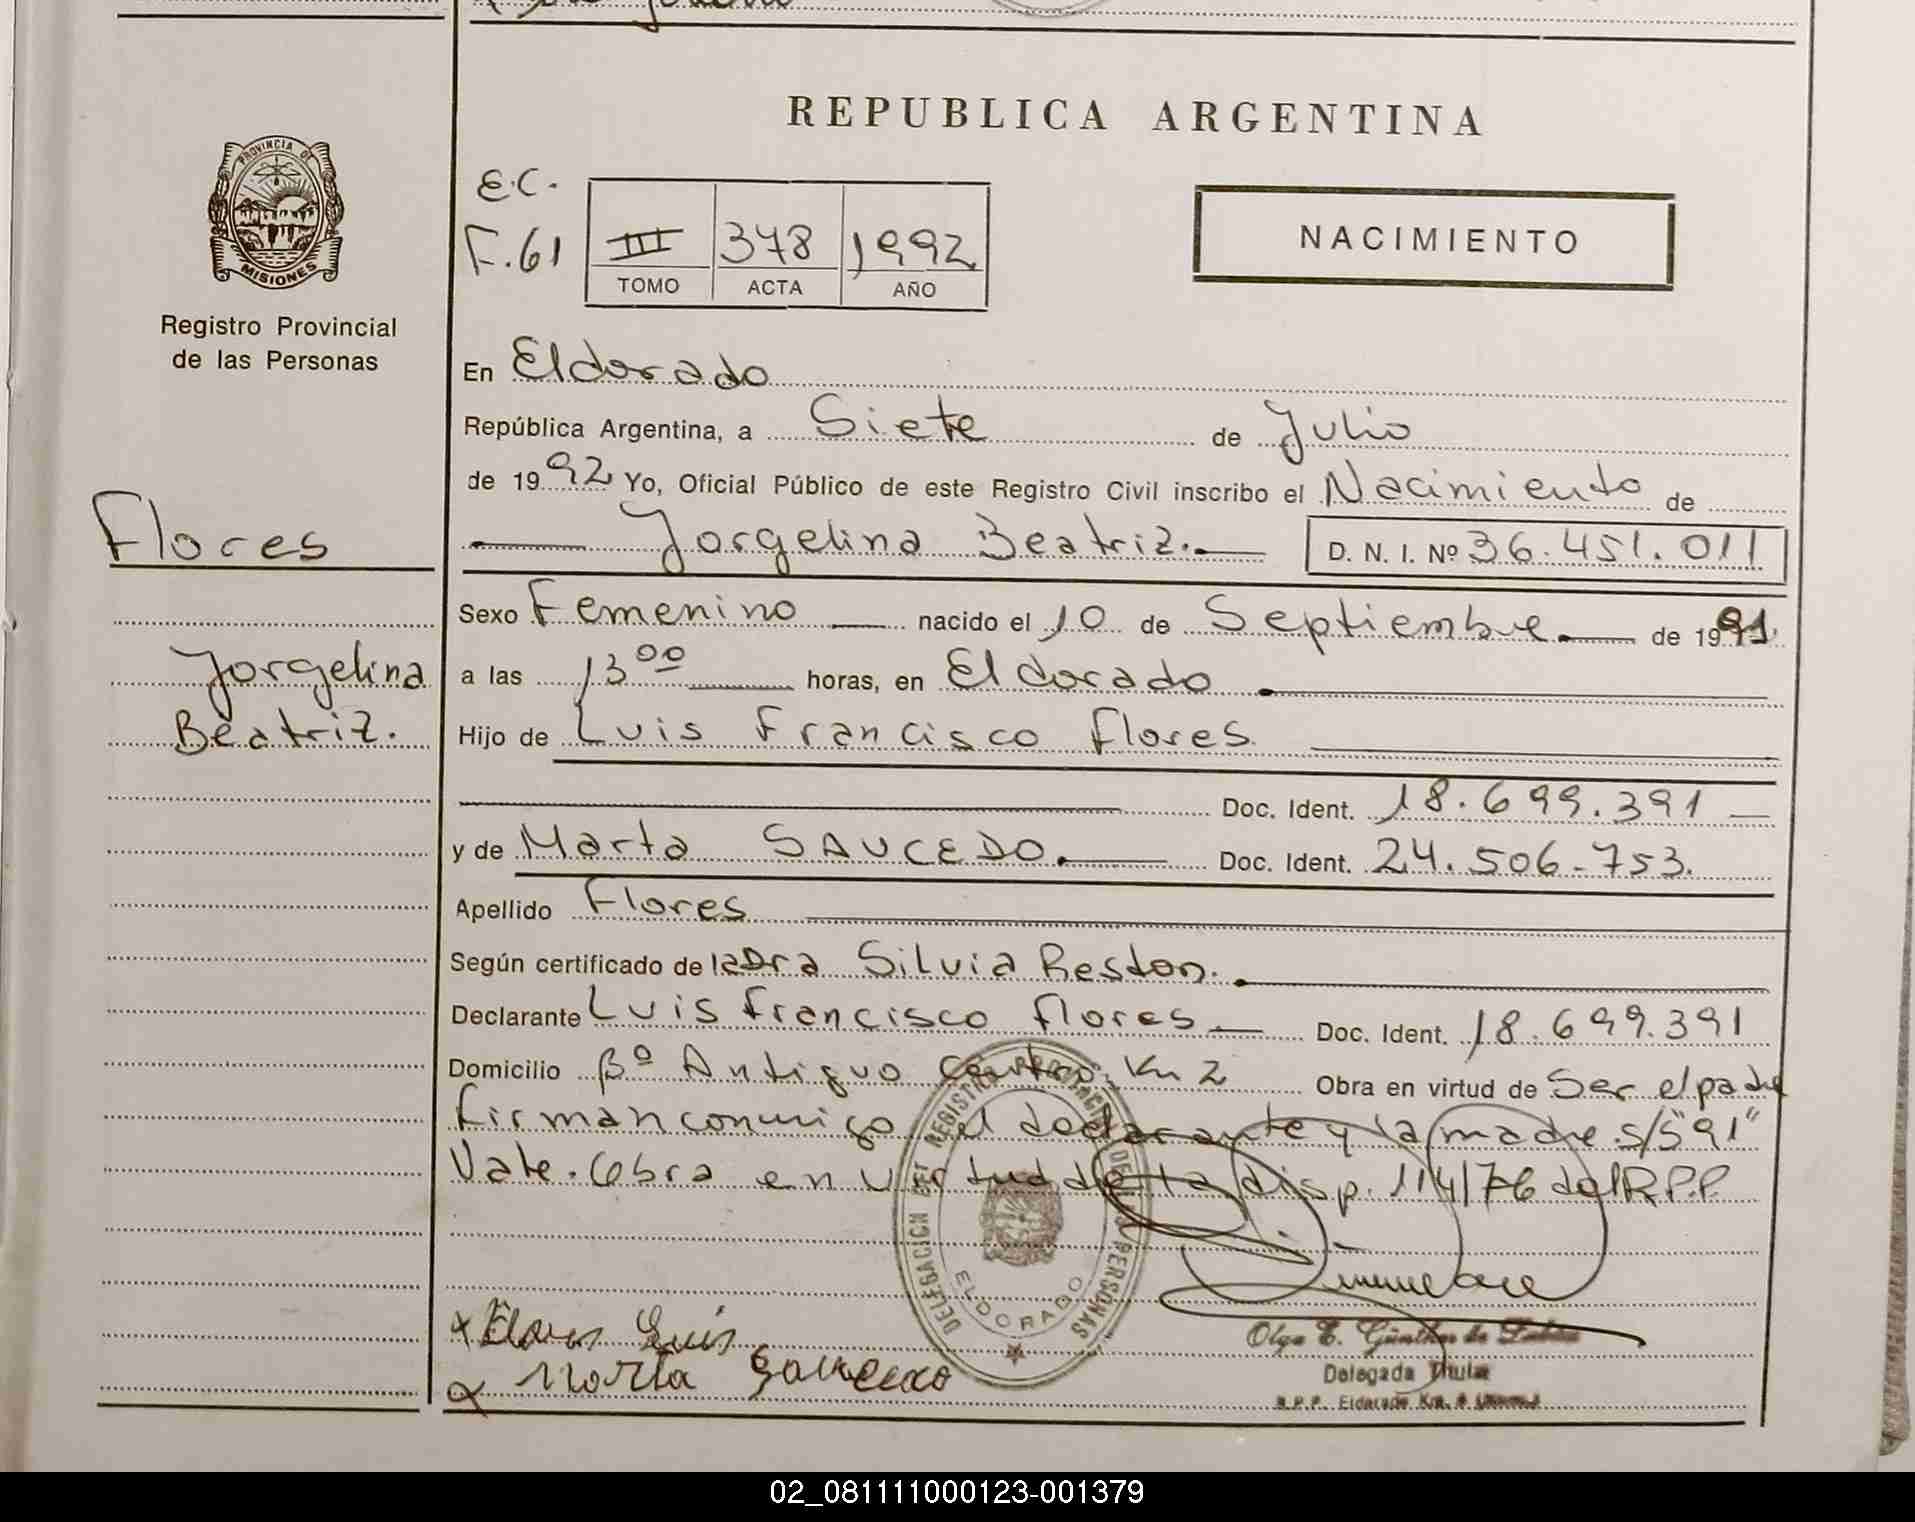 REPUBLICA ARGENTINA
PROVINCIA DE
MISIONES
Registro Provincial
de las Personas
E.C.
F.61
III 378 1992
TOMO ACTA AÑO
NACIMIENTO
En Eldorado
República Argentina, a Siete de Julio
de 1992 Yo, Oficial Público de este Registro Civil inscribo el Nacimiento de
Jorgelina Beatriz. D. N. I. Nº 36.451.011
Flores
Jorgelina
Beatriz.
Sexo Femenino nacido el 10 de Septiembre de 1991.
a las 13 00 horas, en Eldorado
Hijo de Luis Francisco Flores
Doc. Ident. 18.699.391
y de Marta SAUCEDO. Doc. Ident. 24.506-753.
Apellido Flores
Según certificado de la Dra Silvia Reston.
Declarante Luis Francisco Flores Doc. Ident. 18.699.391
Domicilio Bº Antiguo Centro, Km 2 Obra en virtud de Ser el padre
Firman conmigo el declarante y la madre. s/s "91"
Vale. Obra en virtud de la disp. 114/76 del R.P.P.
DELEGACION DEL REGISTRO PROVINCIAL DE LAS PERSONAS
ELDORADO
x Flores Luis
x Marta Saucedo
Olga E. Günther de
Delegada Titular
R.P.P. Eldorado Km.
02_081111000123-001379